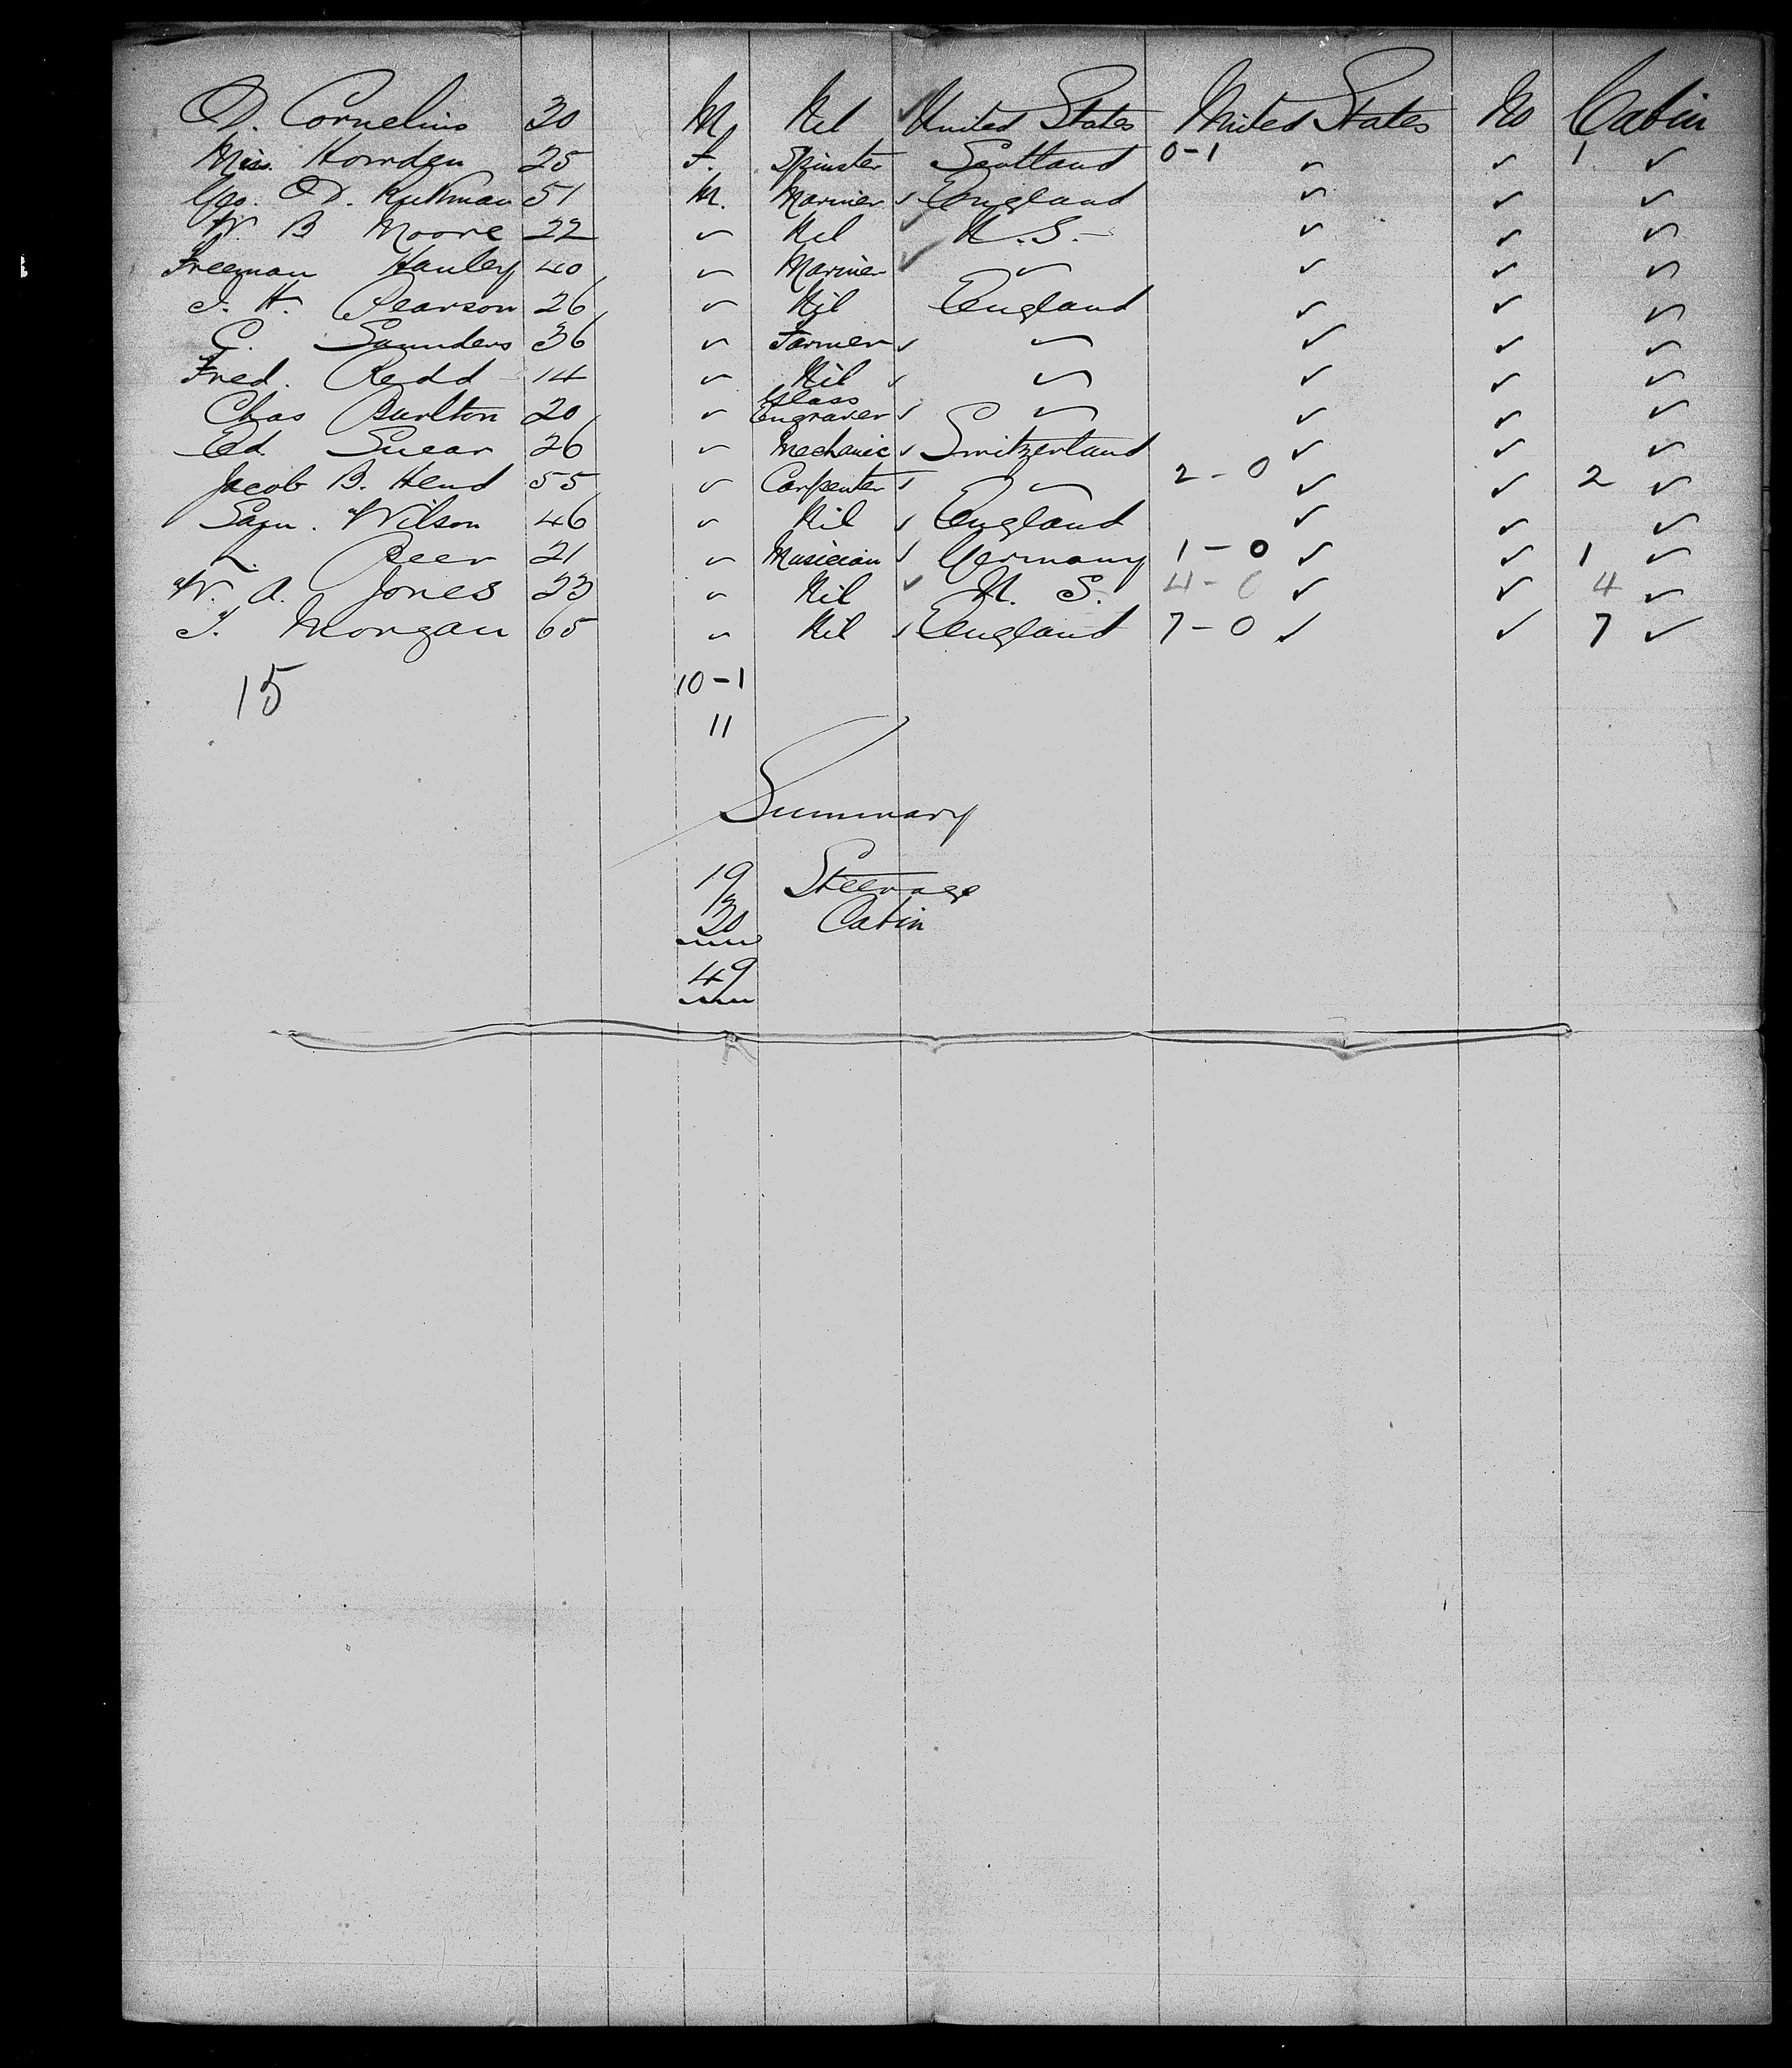 D. Cornelius 30 M Nil ✓ United States United States No Cabin
Miss. Hornden 25 F. Spinster Scotland 0-1 ✓ ✓ 1 ✓
Geo. D. 51 M. Mariner ✓ England ✓ ✓ ✓
W. B Moore 22 ✓ Nil ✓ U.S. ✓ ✓ ✓
Freeman Hanley 40 ✓ Mariner ✓ ✓ ✓ ✓ ✓
J. H. Pearson 26 ✓ Nil England ✓ ✓ ✓
C. Saunders 36 ✓ Farmer ✓ ✓ ✓ ✓ ✓
Fred. Redd 14 ✓ Nil ✓ ✓ ✓ ✓ ✓
Chas Burlton 20 ✓ Glass Engraver ✓ ✓ ✓ ✓ ✓
Ed 26 ✓ Mechanic ✓ Switzerland ✓ ✓ ✓
Jacob B. Hend 55 ✓ Carpenter ✓ ✓ 2-0 ✓ ✓ 2 ✓
Sam. Wilson 46 ✓ Nil ✓ England ✓ ✓ ✓
L. Beer 21 ✓ Musician ✓ Germany 1-0 ✓ ✓ 1 ✓
W. A. Jones 23 ✓ Nil ✓ U. S. 4-0 ✓ ✓ 4 ✓
T. Morgan 65 ✓ Nil ✓ England 7-0 ✓ ✓ 7 ✓
15 10-1
11
Summary
19 Steerage
30 Cabin
49